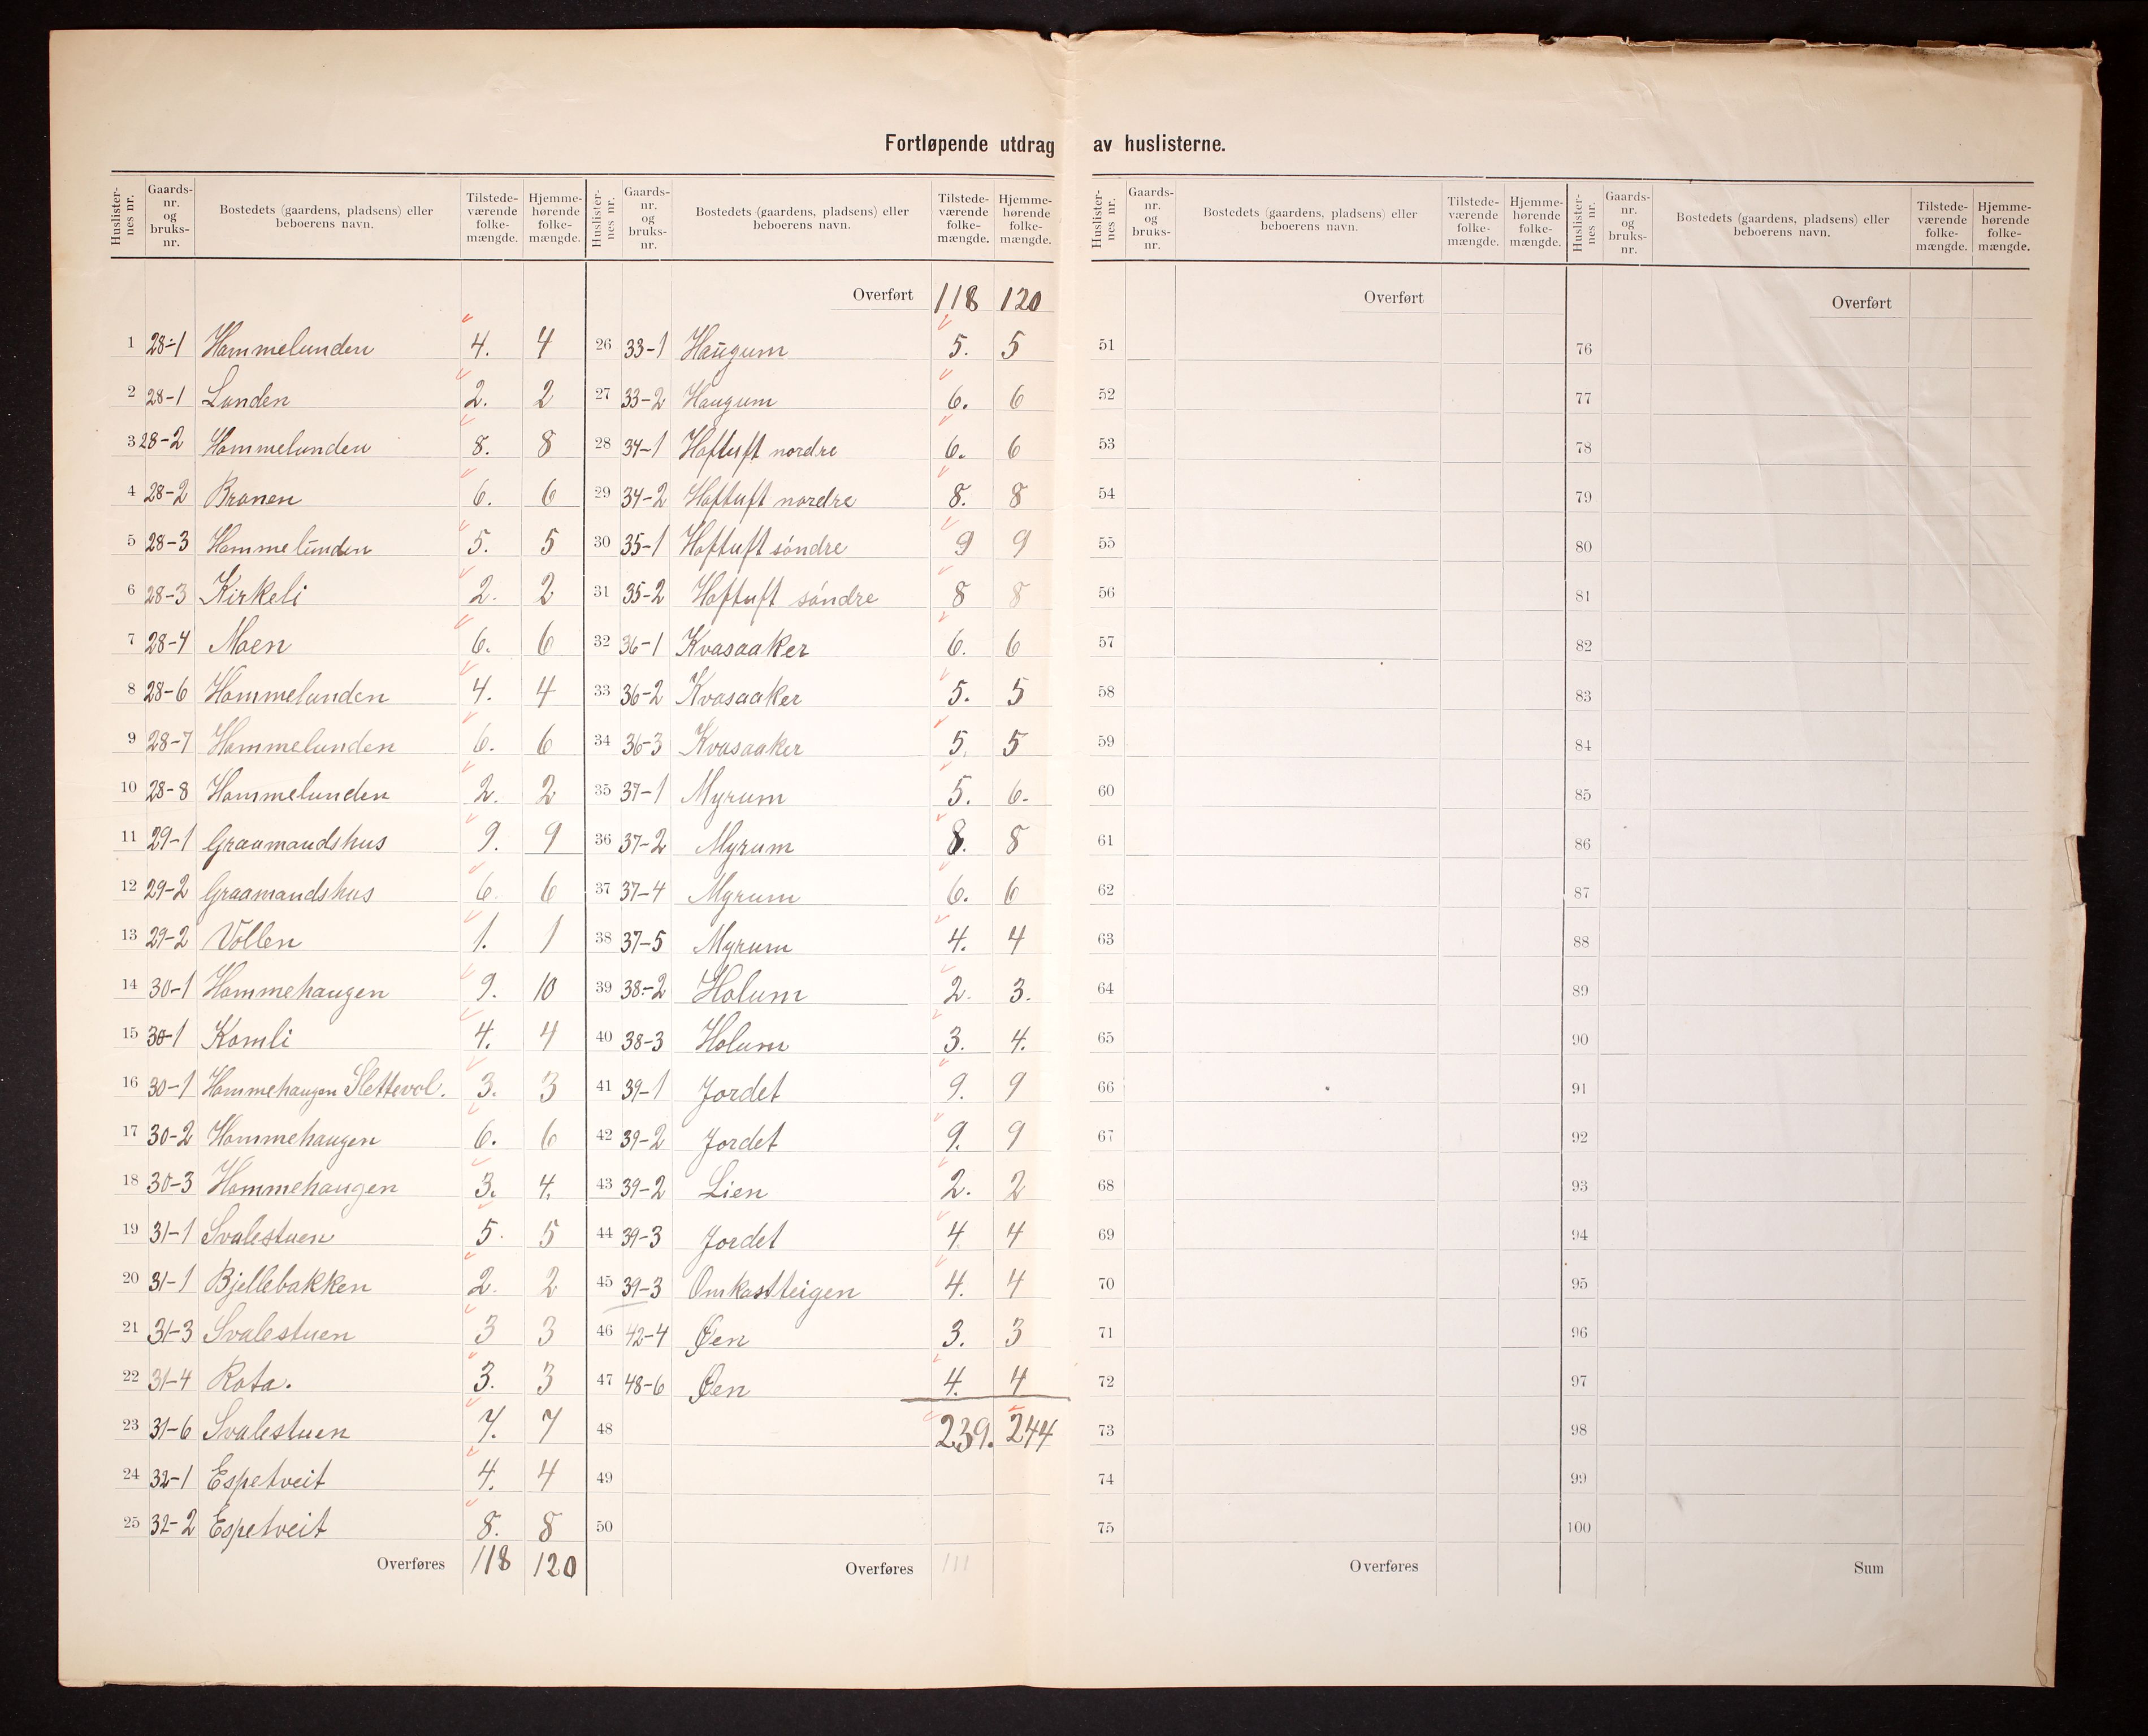 Fortløpende utdrag av huslisterne.
Huslister-nes nr. Gaards-nr. og bruks-nr. Bostedets (gaardens, pladsens) eller beboerens navn. Tilstede-værende folke-mængde. Hjemme-hørende folke-mængde.
1 28-1 Hommelunden 4. 4
2 28-1 Lunden 2. 2
3 28-2 Hommelunden 8. 8
4 28-2 Bronen 6. 6
5 28-3 Hommelunden 5. 5
6 28-3 Kirkeli 2. 2
7 28-4 Moen 6. 6
8 28-6 Hommelunden 4. 4
9 28-7 Hommelunden 6. 6
10 28-8 Hommelunden 2. 2
11 29-1 Graamandshus 9. 9
12 29-2 Graamandshus 6. 6
13 29-2 Vollen 1. 1
14 30-1 Hommehaugen 9. 10
15 30-1 Komli 4. 4
16 30-1 Hommehaugen Slettevol. 3. 3
17 30-2 Hommehaugen 6. 6
18 30-3 Hommehaugen 3. 4.
19 31-1 Svalestuen 5. 5
20 31-1 Bjellebakken 2. 2
21 31-3 Svalestuen 3 3
22 31-4 Rota. 3. 3
23 31-6 Svalestuen 7. 7
24 32-1 Espetveit 4. 4
25 32-2 Espetveit 8. 8
Overføres 118 120
Huslister-nes nr. Gaards-nr. og bruks-nr. Bostedets (gaardens, pladsens) eller beboerens navn. Tilstede-værende folke-mængde. Hjemme-hørende folke-mængde.
Overført 118 120
26 33-1 Haugum 5. 5
27 33-2 Haugum 6. 6
28 34-1 Hoftuft nordre 6. 6
29 34-2 Hoftuft nordre 8. 8
30 35-1 Hoftuft söndre 9 9
31 35-2 Hoftuft söndre 8 8
32 36-1 Kvasaaker 6. 6
33 36-2 Kvasaaker 5. 5
34 36-3 Kvasaaker 5. 5
35 37-1 Myrum 5. 6.
36 37-2 Myrum 8. 8
37 37-4 Myrum 6. 6
38 37-5 Myrum 4. 4
39 38-2 Holum 2. 3.
40 38-3 Holum 3. 4.
41 39-1 Jordet 9. 9
42 39-2 Jordet 9. 9
43 39-2 Lien 2. 2
44 39-3 Jordet 4. 4
45 39-3 Omkastteigen 4. 4
46 42-4 Øen 3. 3
47 48-6 Øen 4. 4
48 239. 244
49
50
Overføres 111
Huslister-nes nr. Gaards-nr. og bruks-nr. Bostedets (gaardens, pladsens) eller beboerens navn. Tilstede-værende folke-mængde. Hjemme-hørende folke-mængde.
Overført
51
52
53
54
55
56
57
58
59
60
61
62
63
64
65
66
67
68
69
70
71
72
73
74
75
Overføres
Huslister-nes nr. Gaards-nr. og bruks-nr. Bostedets (gaardens, pladsens) eller beboerens navn. Tilstede-værende folke-mængde. Hjemme-hørende folke-mængde.
Overført
76
77
78
79
80
81
82
83
84
85
86
87
88
89
90
91
92
93
94
95
96
97
98
99
100
Sum